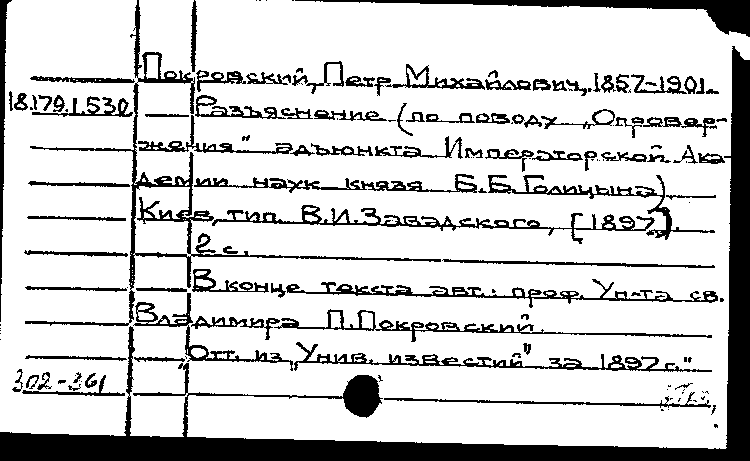 Покровский, Петр Михайлович, 1857-1901.
18.179.1.530 Разъяснение (по поводу „Опровер-
жения" адъюнкта Императорской Ака-
демии наук князя Б.Б.Голицына)
Киев, тип. В.И.Завадского, [1897].
2 с.
В конце текста авт.: проф. Ун-та св.
Владимира П.Покровский.
„Отт. из „Унив. известий" за 1897 г."
302-361